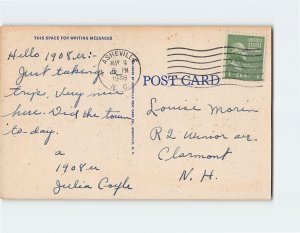 THIS SPACE FOR WRITING MESSAGES
Hello 1908er:-
Just taking a
trip. Very nice
here. Did the town
to-day.
a
1908er
Julia Coyle
ASHEVILLE
MAY 9
PM
N.C.
1 CENT
POST CARD
Louise Morin
R 2 Union
Claremont
N. H.